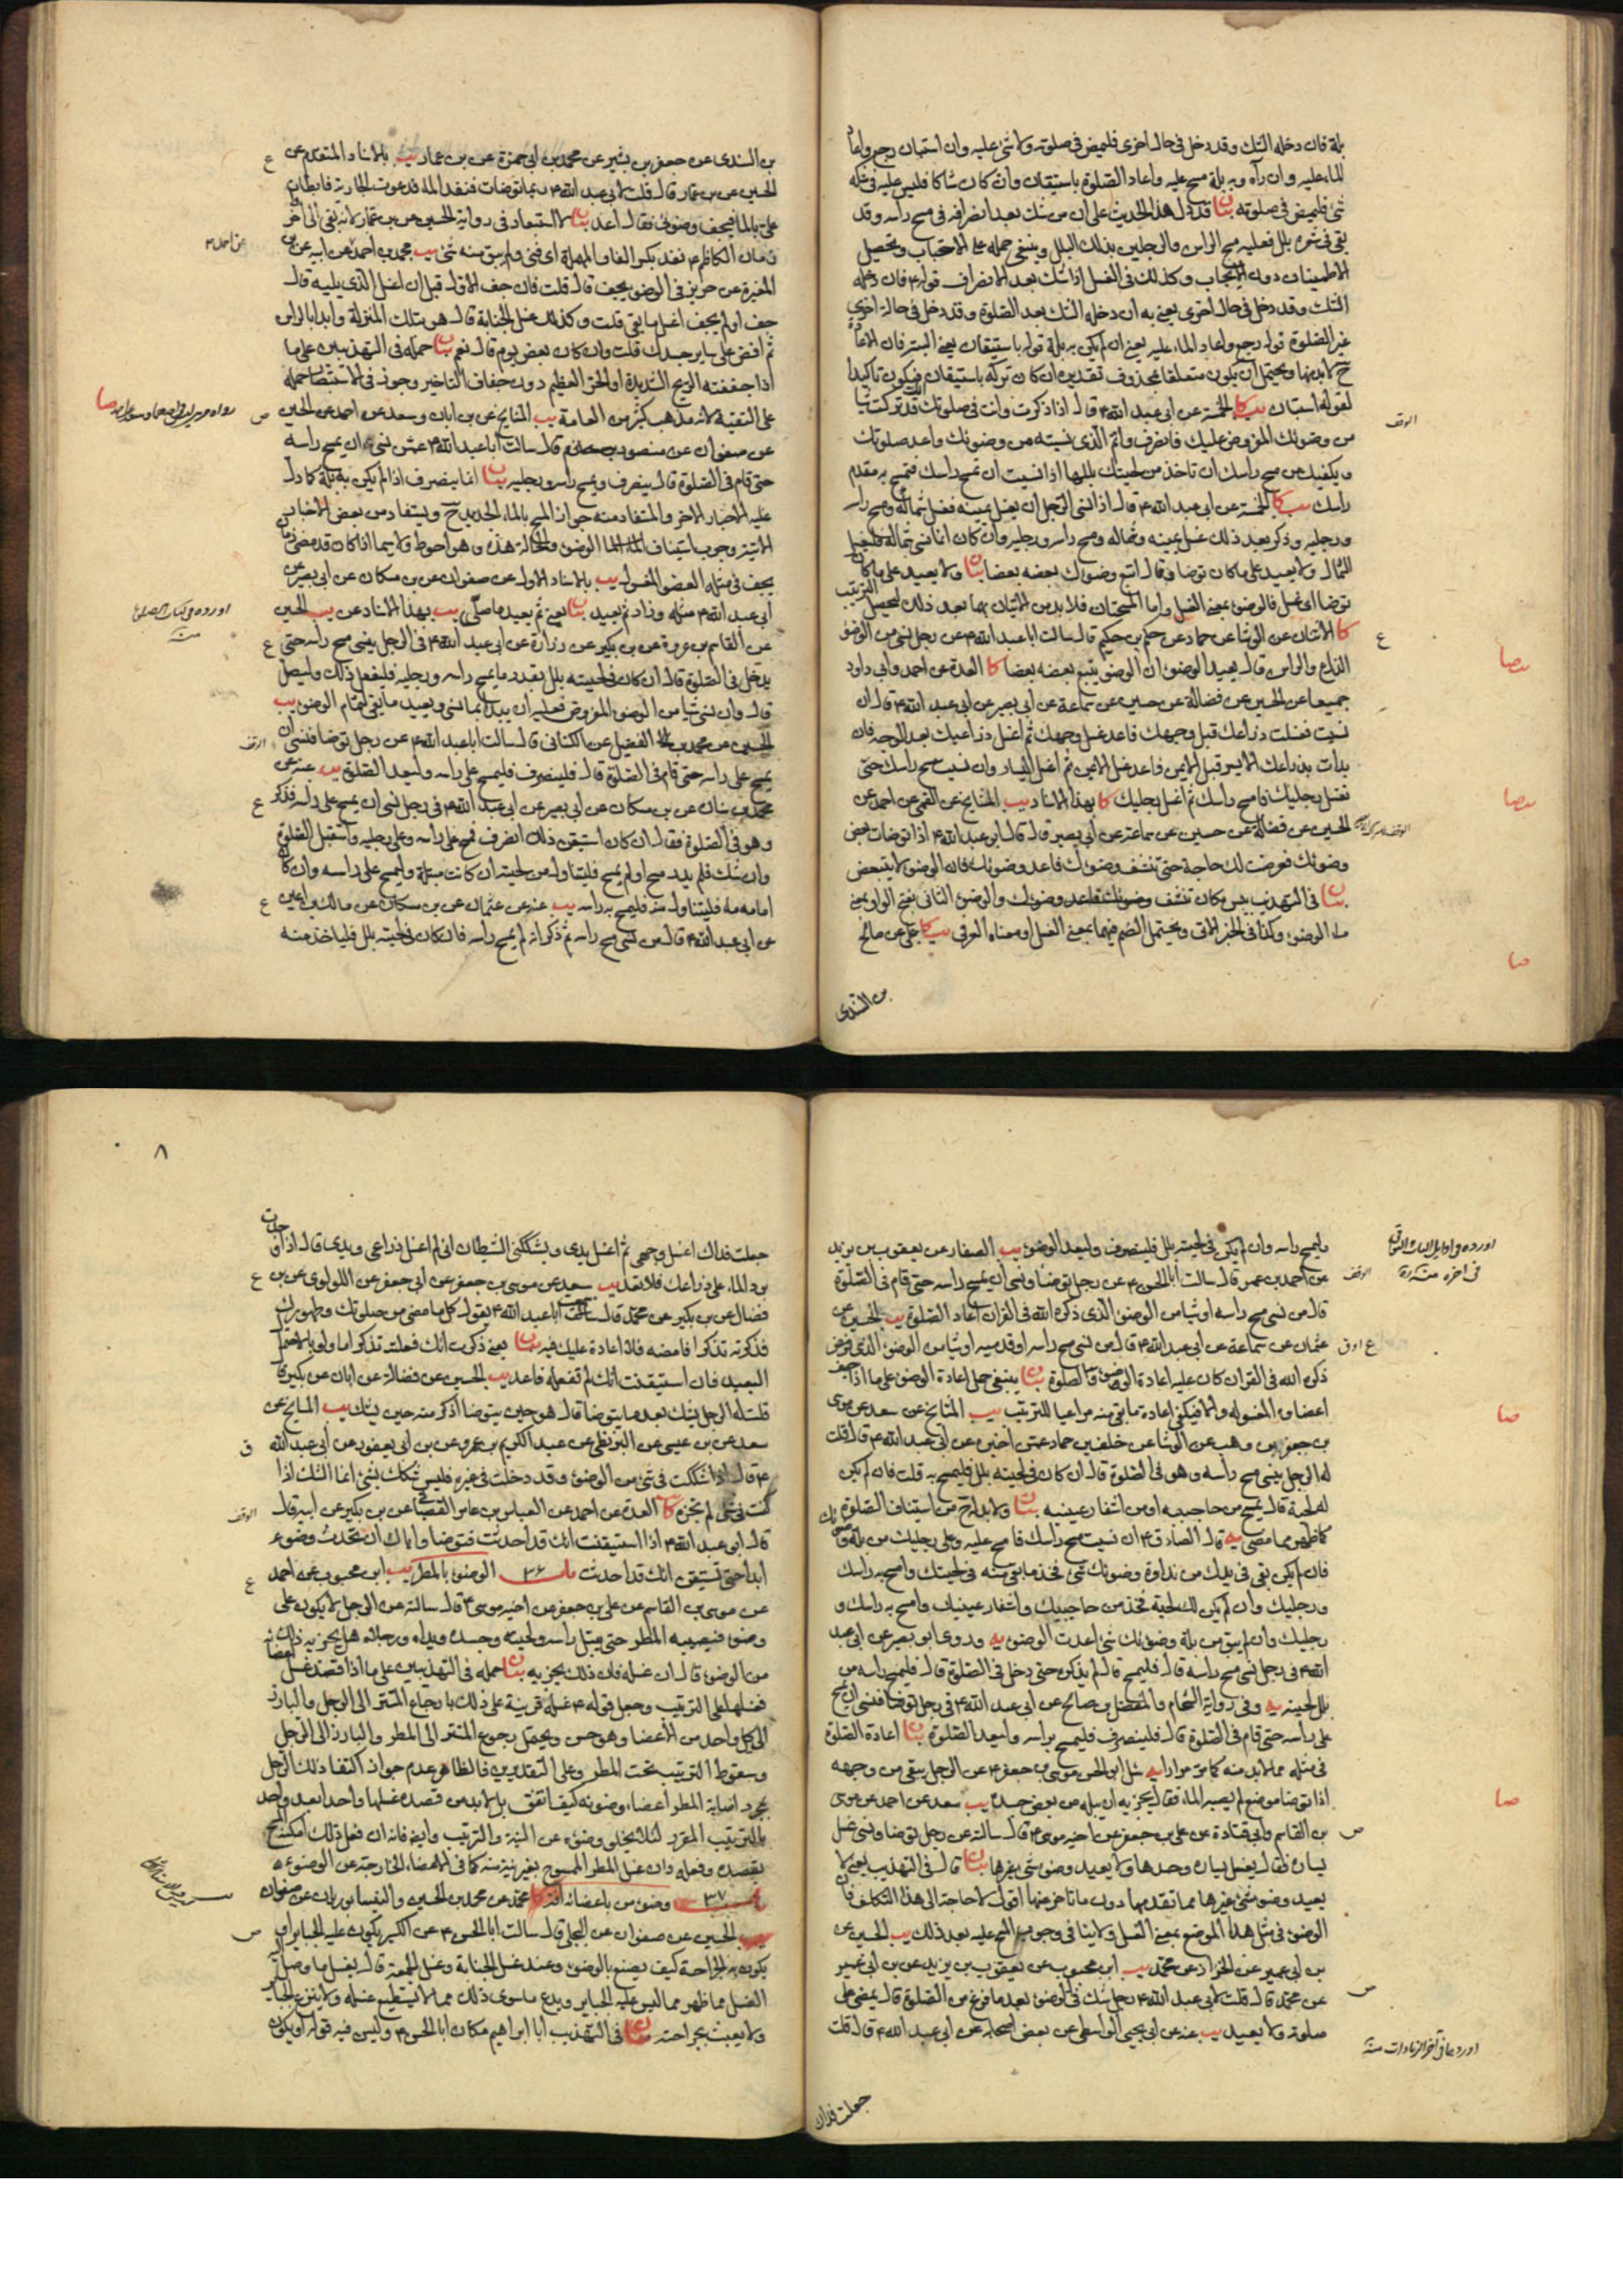 بلة فان دخله الشك وقد دخل في حال اخرى فليمض في صلوته ولا شئ عليه وان استبان رجع واعاد
الماء عليه وان رآه وبه بلة مسح عليه واعاد الصلوة باستيقان وان كان شاكا فليس عليه في شكه
شئ فليمض في صلوته بيان قد دل هذا الحديث على ان من شك بعد انصرافه في مسح راسه وقد
بقي في شعره بلل فعليه مسح الراس والرجلين بذلك البلل وينبغي حمله على الاستحباب وتحصيل
الاطمينان دون الايجاب وكذلك في الغسل اذا شك بعد الانصراف قوله ع فان دخله
الشك وقد دخل في حال اخرى يعني به ان دخله الشك بعد الصلوة وقد دخل في حالة اخرى
غير الصلوة قوله رجع واعاد الماء عليه يعني ان لم يكن به بلة قوله باستيقان
ح لا بد منها ويحتمل ان يكون متعلقا بمحذوف تقديره ان كان تركه باستيقان فيكون تاكيدا
لقوله استبان يب كا الخمسة عن ابي عبد الله ع قال اذا ذكرت وانت في صلوتك انك قد تركت شيئا
من وضوئك المفروض عليك فانصرف واتم الذي نسيته من وضوئك واعد صلوتك
ويكفيك من مسح راسك ان تاخذ من لحيتك بللها اذا نسيت ان تمسح راسك فتمسح به مقدم
راسك يب كا الخمسة عن ابي عبد الله ع قال اذا نسي الرجل ان يغسل يمينه فغسل شماله ومسح راسه
ورجليه وذكر بعد ذلك غسل يمينه وشماله ومسح راسه ورجليه وان كان انما نسي شماله فليغسل
الشمال ولا يعيد على ما كان توضا وقال اتبع وضوءك بعضه بعضا بيان ولا يعيد على ما كان
توضا اي غسل فالوضوء بمعنى الغسل واما المسحتان فلا بد من الاتيان بهما بعد ذلك ليحصل الترتيب
كا الاثنان عن الوشا عن حماد عن حكم بن حكيم قال سالت ابا عبد الله ع عن رجل نسي من الوضوء
الذراع والراس قال يعيد الوضوء ان الوضوء يتبع بعضه بعضا كا العدة عن احمد وابي داود
جميعا عن الحسين عن فضالة عن حسين عن سماعة عن ابي بصير عن ابي عبد الله ع قال ان
نسيت فغسلت ذراعك قبل وجهك فاعد غسل وجهك ثم اغسل ذراعيك بعد الوجه فان
بدات بذراعك الايسر قبل الايمن فاعد غسل الايمن ثم اغسل اليسار وان نسيت مسح راسك حتى
تغسل رجليك فامسح راسك ثم اغسل رجليك كا بهذا الاسناد يب المشايخ عن القمي عن احمد عن
الحسين عن فضالة عن حسين عن سماعة عن ابي بصير قال قال ابو عبد الله ع اذا توضات بعض
وضوئك فعرضت لك حاجة حتى تنشف وضوءك فاعد وضوءك فان الوضوء لا يتبعض
بيان في التهذيب يبس مكان تنشف وضوءك والوضوء الثاني بفتح الواو يعني
ماء الوضوء وكذا في الخبر الاتي ويحتمل الضم فيهما بمعنى الغسل او معناه العرفي يب كا علي عن صالح
بن السندي
الوقف
ع
صا
صا
صا
بن السندي عن جعفر بن بشير عن محمد بن ابي حمزة عن بن عمار يب بالاسناد المتقدم عن
الحسين عن بن عمار قال قلت لابي عبد الله ع ربما توضات فنفد الماء فدعوت الجارية فابطات
علي بالماء فيجف وضوئي فقال اعد بيان لا استبعاد في رواية الحسين عن بن عمار لانه بقي الى اخر
زمان الكاظم ع نفد بكسر الفاء والمهملة اي فني ولم يبق منه شئ يب محمد بن احمد عن ابيه عن بن
المغيرة عن حريز في الوضوء يجف قال قلت فان جف الاول قبل ان اغسل الذي يليه قال
جف او لم يجف اغسل ما بقي قلت وكذلك غسل الجنابة قال هو بتلك المنزلة وابدا بالراس
ثم افض على سائر جسدك قلت وان كان بعض يوم قال نعم بيان حمله في التهذيبين على ما
اذا جففته الريح الشديدة او الحر العظيم دون جفاف التاخير وجوز في الاستبصار حمله
على التقية لانه مذهب كثير من العامة يب المشايخ عن بن ابان وسعد عن احمد عن الحسين
عن صفوان عن منصور قال سالت ابا عبد الله ع عمن نسي ان يمسح راسه
حتى قام في الصلوة قال ينصرف ويمسح راسه ورجليه بيان انما ينصرف اذا لم يكن به بلة كما دل
عليه الاخبار الاخر والمستفاد منه جواز المسح بالماء الجديد ح ويستفاد من بعض الاخبار
الاتية وجوب استيناف الوضوء والحالة هذه وهو احوط ولا سيما اذا كان قد مضى زمان
يجف في مثله العضو المغسول يب بالاسناد الاول عن صفوان عن بن مسكان عن ابي بصير عن
ابي عبد الله ع مثله وزاد ثم يعيد بيان يعني ثم يعيد ما صلى يب بهذا الاسناد عن يب الحسين
عن القاسم بن عروة عن بن بكير عن زرارة عن ابي عبد الله ع في الرجل ينسى مسح راسه حتى
يدخل في الصلوة قال ان كان في لحيته بلل بقدر ما يمسح راسه ورجليه فليفعل ذلك وليصل
قال وان نسي شيئا من الوضوء المفروض فعليه ان يبدا بما نسي ويعيد ما بقي لتمام الوضوء يب
الحسين عن محمد بن الفضيل عن الكناني قال سالت ابا عبد الله ع عن رجل توضا فنسي ان
يمسح على راسه حتى قام في الصلوة قال فلينصرف فليمسح على راسه وليعد الصلوة يب عنه عن
محمد بن سنان عن بن مسكان عن ابي بصير عن ابي عبد الله ع في رجل نسي ان يمسح على راسه فذكر
وهو في الصلوة فقال ان كان استيقن ذلك انصرف فمسح على راسه وعلى رجليه واستقبل الصلوة
وان شك فلم يدر مسح او لم يمسح فليتناول من لحيته ان كانت مبتلة وليمسح على راسه وان كان
امامه ماء فليتناول منه فليمسح به راسه يب عنه عن عثمان عن بن مسكان عن مالك بن اعين
عن ابي عبد الله ع قال من نسي مسح راسه ثم ذكر انه لم يمسح راسه فان كان في لحيته بلل فلياخذ منه
ع
ص
صا
ع
الوقف
ع
ع
وليمسح راسه وان لم يكن في لحيته بلل فلينصرف وليعد الوضوء يب الصفار عن يعقوب بن يزيد
عن احمد بن عمر قال سالت ابا الحسن ع عن رجل توضا ونسي ان يمسح راسه حتى قام في الصلوة
قال من نسي مسح راسه او شيئا من الوضوء الذي ذكره الله في القران اعاد الصلوة يب الحسين عن
عثمان عن سماعة عن ابي عبد الله ع قال من نسي مسح راسه او قدميه او شيئا من الوضوء الذي
ذكره الله في القران كان عليه اعادة الوضوء والصلوة بيان ينبغي حمل اعادة الوضوء على ما اذا جف
اعضاؤه المغسولة والا فيكفي اعادة ما بقي منه مراعيا للترتيب يب المشايخ عن سعد عن موسى
بن جعفر بن وهب عن الوشا عن خلف بن حماد عمن اخبره عن ابي عبد الله ع قال قلت
له الرجل ينسى مسح راسه وهو في الصلوة قال ان كان في لحيته بلل فليمسح به قلت فان لم يكن
له لحية قال يمسح من حاجبيه او من اشفار عينيه بيان ولا بد ح من استيناف الصلوة
كما ظهر مما مضى يه قال الصادق ع ان نسيت مسح راسك فامسح عليه وعلى رجليك من بلة وضوئك
فان لم يكن بقي في يدك من نداوة وضوئك شئ فخذ ما بقي منه في لحيتك وامسح به راسك
ورجليك وان لم يكن لك لحية فخذ من حاجبيك واشفار عينيك وامسح به راسك و
رجليك وان لم يبق من بلة وضوئك شئ اعدت الوضوء يه وروى ابو بصير عن ابي عبد
الله ع في رجل نسي مسح راسه قال فليمسح قال لم يذكره حتى دخل في الصلوة قال فليمسح راسه من
بلل لحيته يه وفي رواية الشحام والمفضل بن صالح عن ابي عبد الله ع في رجل توضا فنسي ان يمسح
على راسه حتى قام في الصلوة قال فلينصرف فليمسح براسه وليعد الصلوة بيان اعادة الصلوة
في مثله مما لا بد منه كما مر مرارا يه سئل ابو الحسن موسى بن جعفر ع عن الرجل يبقى من وجهه
اذا توضا موضع لم يصبه الماء فقال يجزيه ان يبله من بعض جسده يب سعد عن احمد عن موسى
بن القاسم وابي قتادة عن علي بن جعفر عن اخيه موسى ع قال سالته عن رجل توضا ونسي غسل
يساره فقال يغسل يساره وحدها ولا يعيد وضوء شئ غيرها بيان قال في التهذيب يعني لا
يعيد وضوء شئ غيرها مما تقدمها دون ما تاخر عنها اقول لا حاجة الى هذا التكلف فان
الوضوء في مثل هذا الموضع بمعنى الغسل ولا ينافي وجوب المسح عليه بعد ذلك يب الحسين عن
بن ابي عمير عن الخزاز عن محمد يب ابن محبوب عن يعقوب بن يزيد عن بن ابي عمير
عن محمد قال قلت لابي عبد الله ع رجل شك في الوضوء بعد ما فرغ من الصلوة قال يمضي على
صلوته ولا يعيد يب عنه عن ابي يحيى الواسطي عن بعض اصحابه عن ابي عبد الله ع قال قلت
جعلت فداك
الوقف
صا
صا
ص
ص
اوردها في آخر الزيادات منه
٨
جعلت فداك اغسل وجهي ثم اغسل يدي ويشككني الشيطان اني لم اغسل ذراعي ويدي قال اذا وجدت
برد الماء على ذراعك فلا تعد يب سعد عن موسى بن جعفر عن ابي جعفر عن اللولوي عن بن
فضال عن بن بكير عن محمد قال سمعت ابا عبد الله ع يقول كل ما مضى من صلوتك وطهورك
فذكرته تذكرا فامضه فلا اعادة عليك فيه بيان يعني ذكرت انك فعلته تذكرا ما ولو بالاحتمال
البعيد فان استيقنت انك لم تفعله فاعد يب الحسين عن فضالة عن ابان عن بكير قال
قلت له الرجل يشك بعد ما يتوضا قال هو حين يتوضا اذكر منه حين يشك يب المشايخ عن
سعد عن بن عيسى عن البزنطي عن عبد الكريم بن عمرو عن بن ابي يعفور عن ابي عبد الله
ع قال اذا شككت في شئ من الوضوء وقد دخلت في غيره فليس شكك بشئ انما الشك اذا
كنت في شئ لم تجزه كا العدة عن احمد عن العباس بن عامر القصباني عن بن بكير عن ابيه قال
قال ابو عبد الله ع اذا استيقنت انك قد احدثت فتوضا واياك ان تحدث وضوء
ابدا حتى تستيقن انك قد احدثت باب ٣٦ الوضوء بالمطر يب ابن محبوب عن احمد
عن موسى بن القاسم عن علي بن جعفر عن اخيه موسى ع قال سالته عن الرجل لا يكون على
وضوء فيصيبه المطر حتى يبتل راسه ولحيته وجسده ويداه ورجلاه هل يجزيه ذلك
من الوضوء قال ان غسله فان ذلك يجزيه بيان حمله في التهذيبين على ما اذا قصد غسل اعضائه
فغسلها على الترتيب وجعل قوله ع غسله قرينة على ذلك بارجاع المستتر الى الرجل والبارز
الى كل واحد من الاعضاء وهو حسن ويحتمل رجوع المستتر الى المطر والبارز الى الرجل
وسقوط الترتيب تحت المطر وعلى التقديرين فالظاهر عدم جواز اكتفاء ذلك الرجل
بمجرد اصابة المطر اعضاء وضوئه كيف اتفق بل لا بد من قصده غسلها واحدا بعد واحد
بالترتيب المقرر لئلا يخلو وضوؤه عن النية والترتيب وايضا فانه ان فعل ذلك امكنه المسح
بقصده وفعله وان غسل المطر الممسوح بغير نية منه كما في الاعضاء الخارجة عن الوضوء
باب ٣٧ وضوء من باعضائه افة كا محمد عن محمد بن الحسين والنيسابوريان عن صفوان
يب الحسين عن صفوان عن البجلي قال سالت ابا الحسن ع عن الكسير يكون عليه الجبائر او
يكون به الجراحة كيف يصنع بالوضوء وعند غسل الجنابة وغسل الجمعة قال يغسل ما وصل اليه
الغسل مما ظهر مما ليس عليه الجبائر ويدع ما سوى ذلك مما لا يستطيع غسله ولا ينزع الجبائر
ولا يعبث بجراحته بيان في التهذيب ابا ابراهيم مكان ابا الحسن ع وليس فيه قوله او يكون
ع
ق
الوقف
ع
ص